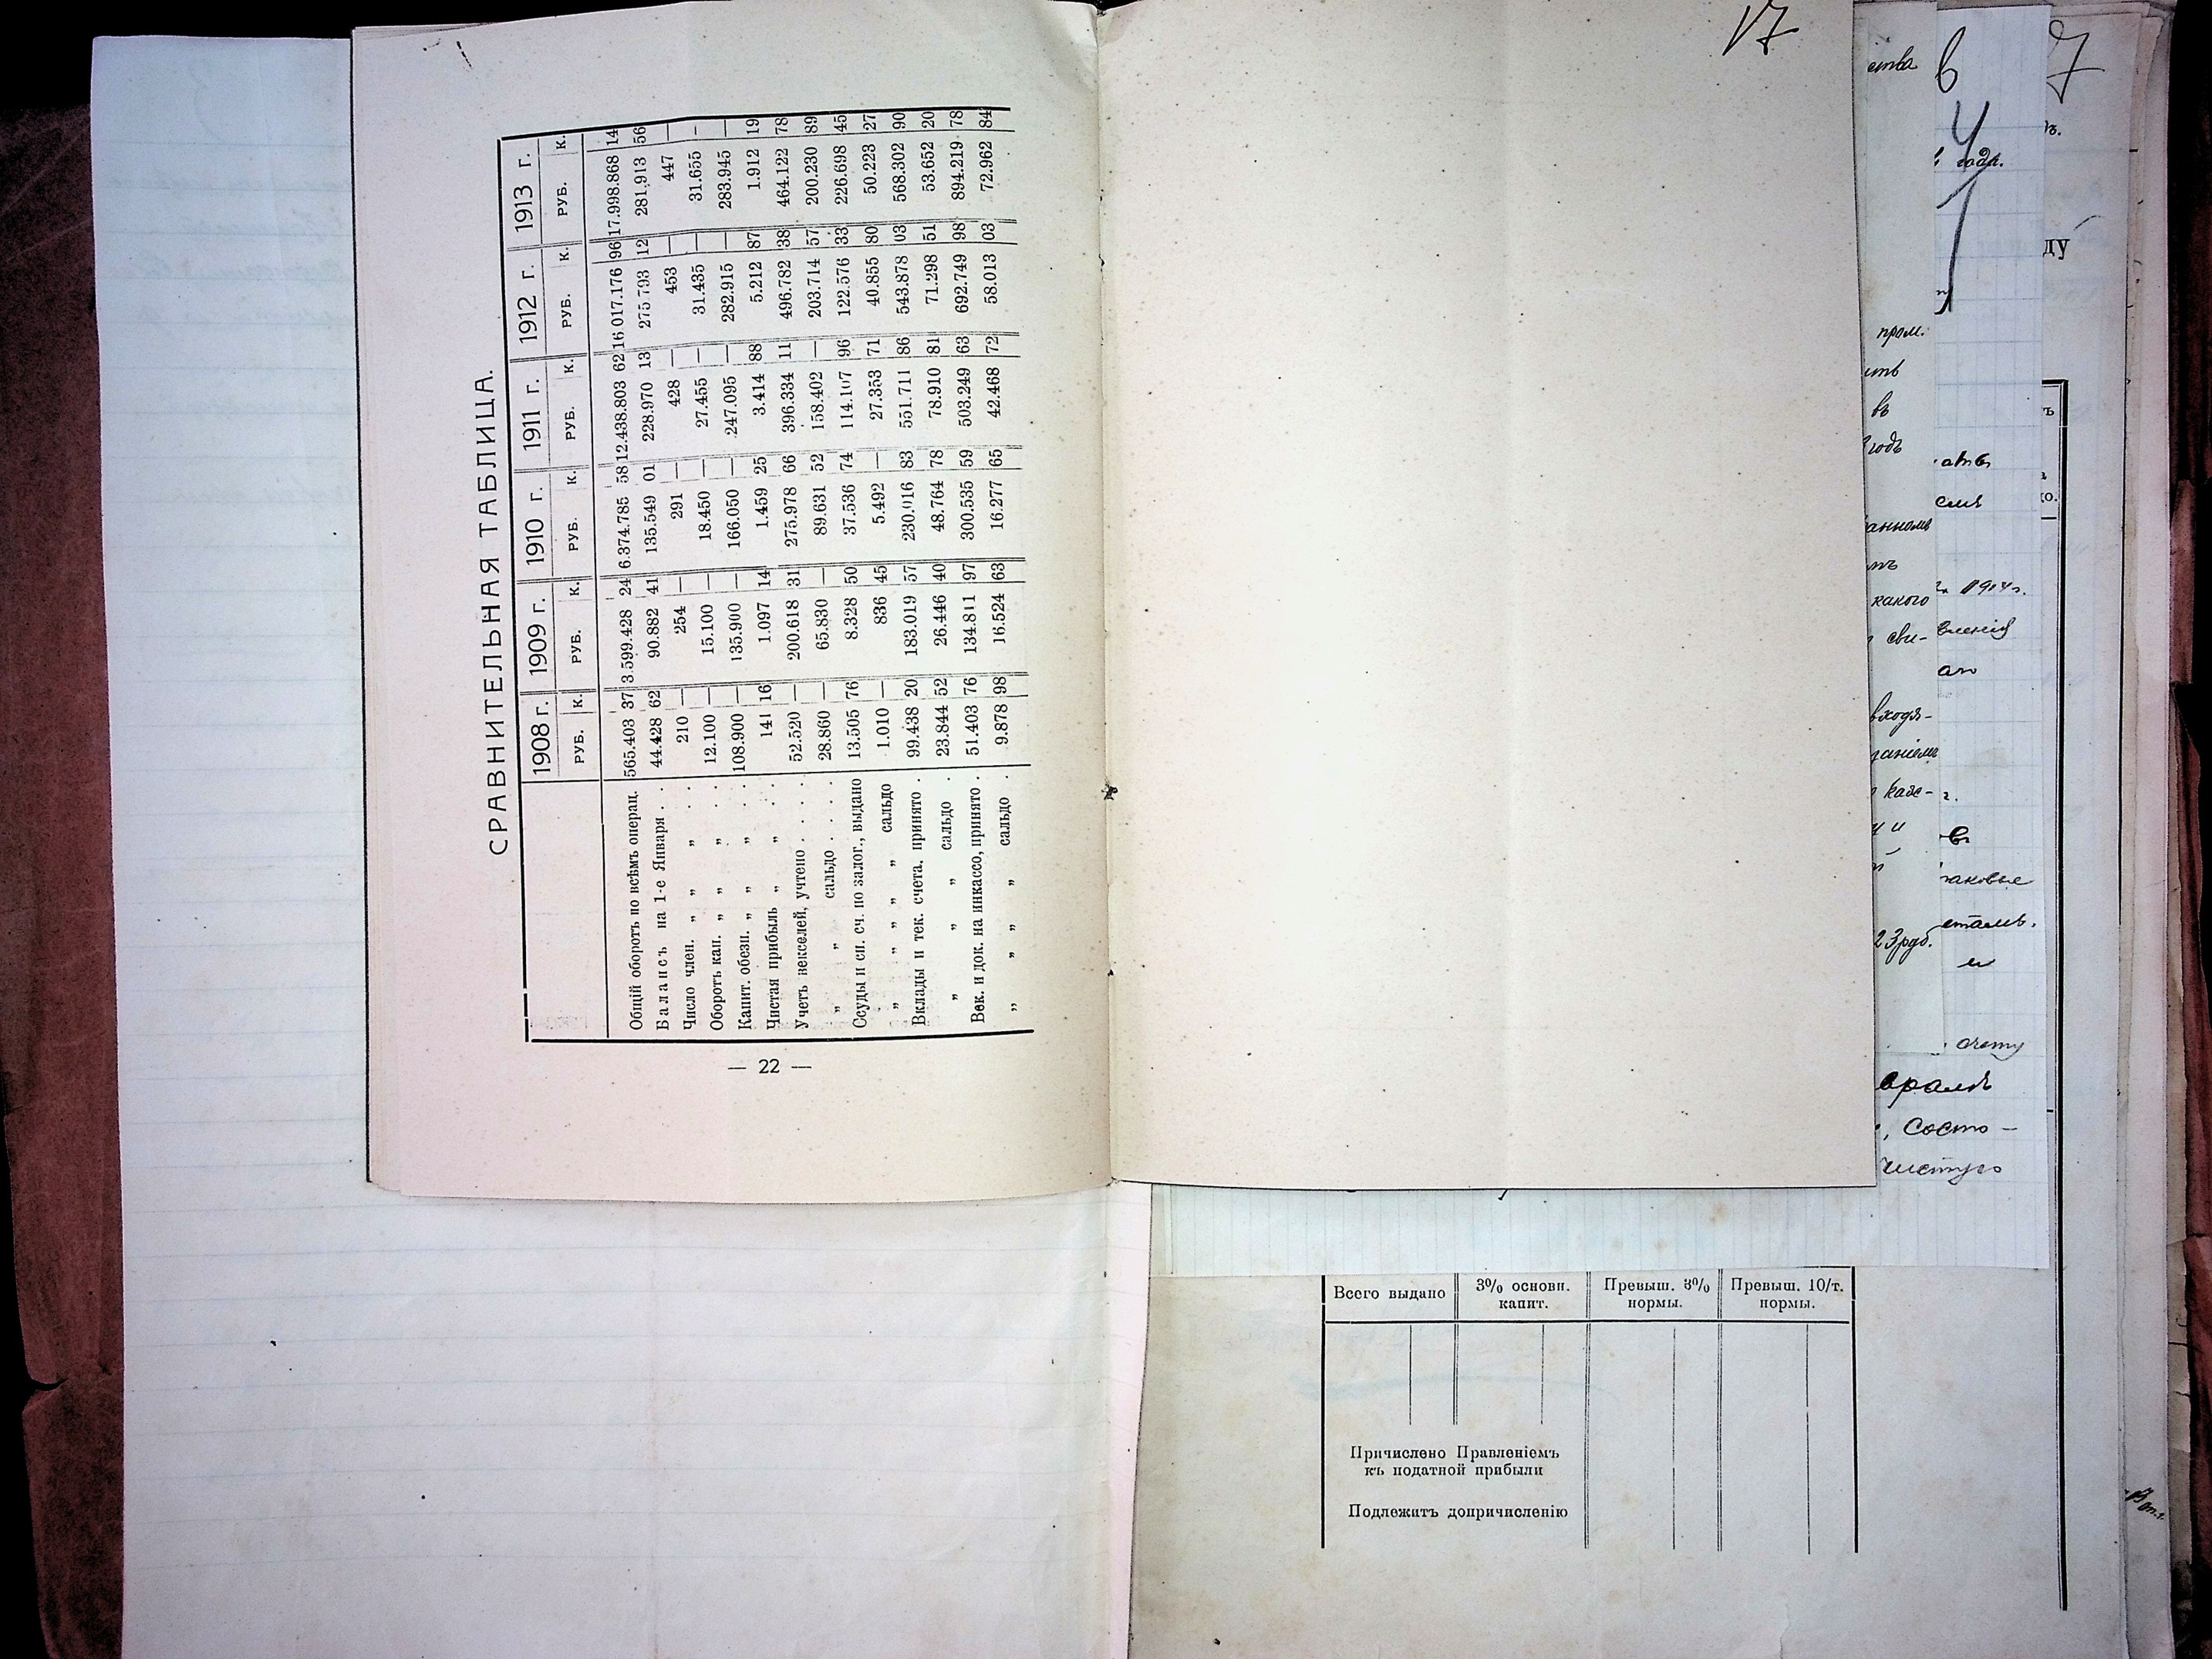 СРАВНИТЕЛЬНАЯ ТАБЛИЦА.
1908 г. 1909 г. 1910 г. 1911 г. 1912 г. 1913 г.
РУБ. К. РУБ. К. РУБ. К. РУБ. К. РУБ. К. РУБ. К.
Общій оборотъ по всѣмъ операц. 565.403 37 3.599.428 24 6.374.785 58 12.438.803 62 16 017.176 96 17.998.868 14
Балансъ на 1-е Января . . 44.428 62 90.882 41 135.549 01 228.970 13 275 793 12 281.913 56
Число член. „ „ „ . . 210 — 254 — 291 — 428 — 453 — 447 —
Оборотъ кап. „ „ „ . . 12.100 — 15.100 — 18.450 — 27.455 — 31.435 — 31.655 —
Капит. обезп. „ „ „ . . 108.900 — 135.900 — 166.050 — 247.095 — 282.915 — 283.945 —
Чистая прибыль „ „ . . 141 16 1.097 14 1.459 25 3.414 88 5.212 87 1.912 19
Учетъ векселей, учтено . . . . 52.520 — 200.618 31 275.978 66 396.334 11 496.782 38 464.122 78
„ „ сальдо . . . . 28.860 — 65.830 — 89.631 52 158.402 — 203.714 57 200.230 89
Ссуды и сп. сч. по залог., выдано 13.505 76 8.328 50 37.536 74 114.107 96 122.576 33 226.698 45
„ „ „ „ „ сальдо 1.010 — 836 45 5.492 — 27.353 71 40.855 80 50.223 27
Вклады и тек. счета. принято . 99.438 20 183.019 57 230.016 83 551.711 86 543.878 03 568.302 90
„ „ „ сальдо . 23.844 52 26.446 40 48.764 78 78.910 81 71.298 51 53.652 20
Век. и док. на инкассо, принято . 51.403 76 134.811 97 300.535 59 503.249 63 692.749 98 894.219 78
„ „ „ „ сальдо . 9.878 98 16.524 63 16.277 65 42.468 72 58.013 03 72.962 84
— 22 —
17
ства
пром.
въ
какого
входя-
23 руб.
в
4
года.
1914 г.
таковые
и
, состо-
чистую
7
ду
Всего выдано 3% основн. капит. Превыш. 3% нормы. Превыш. 10/т. нормы.
Причислено Правленіемъ
къ податной прибыли
Подлежитъ допричисленію